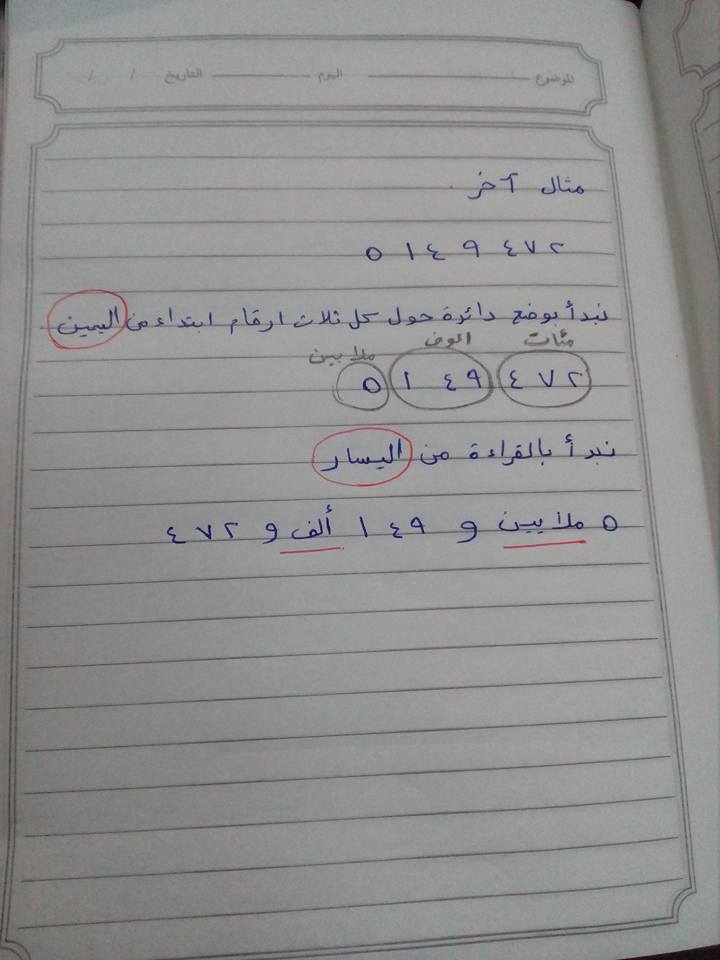 الموضوع اليوم التاريخ / /
مثال آخر
٥ ١ ٤ ٩ ٤ ٧ ٢
نبدأ بوضع دائرة حول كل ثلاث ارقام ابتداء من اليمين
مئات الوف ملايين
٥ ١ ٤ ٩ ٤ ٧ ٢
نبدأ بالقراءة من اليسار
٥ ملايين و ١ ٤ ٩ ألف و ٤ ٧ ٢